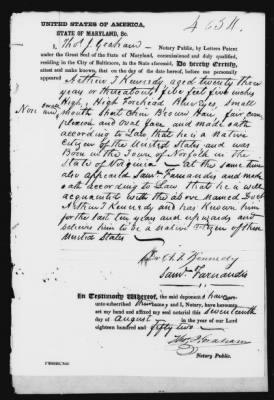 UNITED STATES OF AMERICA,
STATE OF MARYLAND, Sc.
I, Thos J. Graham Notary Public, by Letters Patent
under the Great Seal of the State of Maryland, commissioned and duly qualified,
residing in the City of Baltimore, in the State aforesaid, Do hereby Certify,
attest and make known, that on the day of the date hereof, before me personally
appeared
Arthur J Kennedy aged twenty three
years or thereabouts five feet five inches
High, High Forehead Blue Eyes, Small
mouth Short Chin Brown Hair, fair com
plexion and Oval face, and made oath
according to Law that he is a native
citizen of the United States and was
Born in the Town of Norfolk in the
State of Virginia at the same time
also appeared Saml Farnandis and made
oath according to Law that he is well
acquainted with the above named Doct
Arthur J Kennedy and has known him
for the last ten years and upwards and
believes him to be a native citizen of these
United States
Kennedy
Saml Farnandis
In Testimony Whereof, the said deponents have
unto subscribed their names and I, Notary, have hereunto
set my hand and affixed my seal notarial this seventeenth
day of August in the year of our Lord
eighteen hundred and fifty two
Thos J Graham
Notary Public.